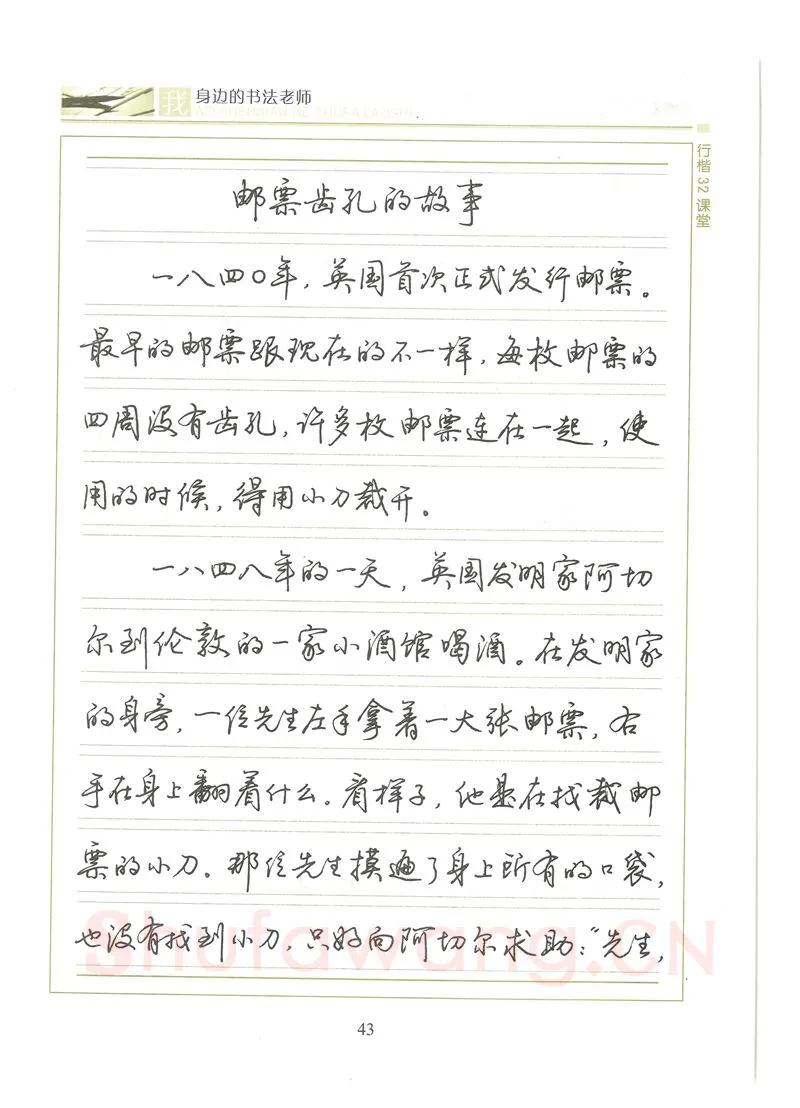 我 身边的书法老师
WO SHENBIAN DE SHUFA LAOSHI
行楷32课堂
邮票齿孔的故事
一八四〇年，英国首次正式发行邮票。
最早的邮票跟现在的不一样，每枚邮票的
四周没有齿孔，许多枚邮票连在一起，使
用的时候，得用小刀裁开。
一八四八年的一天，英国发明家阿切
尔到伦敦的一家小酒馆喝酒。在发明家
的身旁，一位先生左手拿着一大张邮票，右
手在身上翻着什么。看样子，他是在找裁邮
票的小刀。那位先生摸遍了身上所有的口袋，
也没有找到小刀，只好向阿切尔求助：“先生，
Shufawang.CN
43